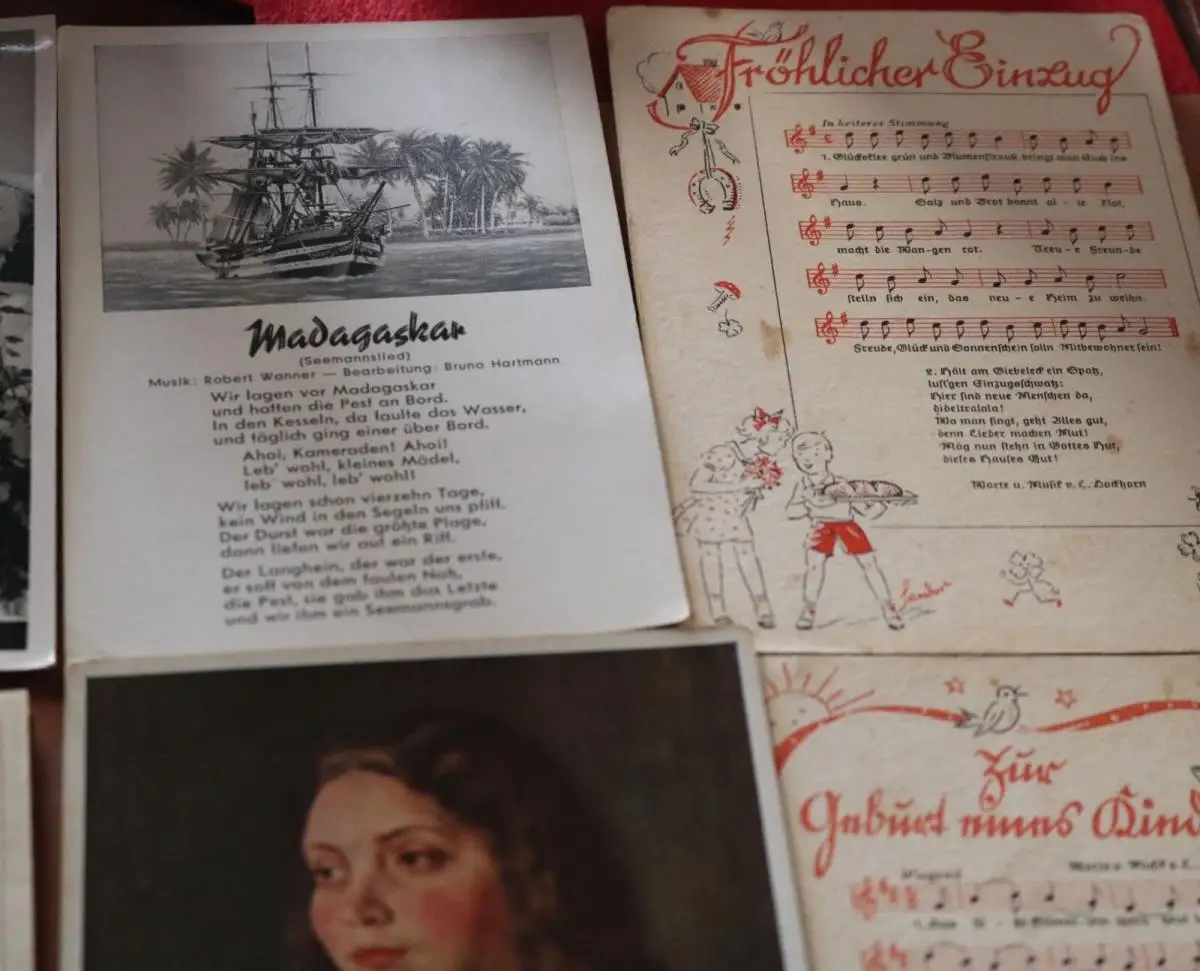 Madagaskar
(Seemannslied)
Musik: Robert Wanner — Bearbeitung: Bruno Hartmann
Wir lagen vor Madagaskar
und hatten die Pest an Bord.
In den Kesseln, da faulte das Wasser,
und täglich ging einer über Bord.
Ahoi, Kameraden! Ahoi!
Leb' wohl, kleines Mädel,
leb' wohl, leb' wohl!
Wir lagen schon vierzehn Tage,
kein Wind in den Segeln uns pfiff.
Der Durst war die größte Plage,
dann liefen wir auf ein Riff.
Der Langhein, der war der erste,
er soff von dem faulen Naß,
die Pest, sie gab ihm das Letzte
und wir ihm ein Seemannsgrab.
Fröhlicher Einzug
In heiterer Stimmung
1. Glücksklee grün und Blumenstrauß bringt man Euch ins
Haus. Salz und Brot bannt al - le Not,
macht die Wan-gen rot. Treu - e Freun-de
stelln sich ein, das neu - e Heim zu weihn.
Freude, Glück und Sonnenschein solln Mitbewohner sein!
2. Hält am Giebeleck ein Spatz,
lust'gen Einzugsschwatz:
Hier sind neue Menschen da,
dideltralala!
Wo man singt, geht Alles gut,
denn Lieder machen Mut!
Mög nun stehn in Gottes Hut,
dieses Hauses Gut!
Worte u. Musik v. L. Dockhorn
Sandor
Zur
Geburt eines Kind
Wiegend
Worte u. Musik v. L.